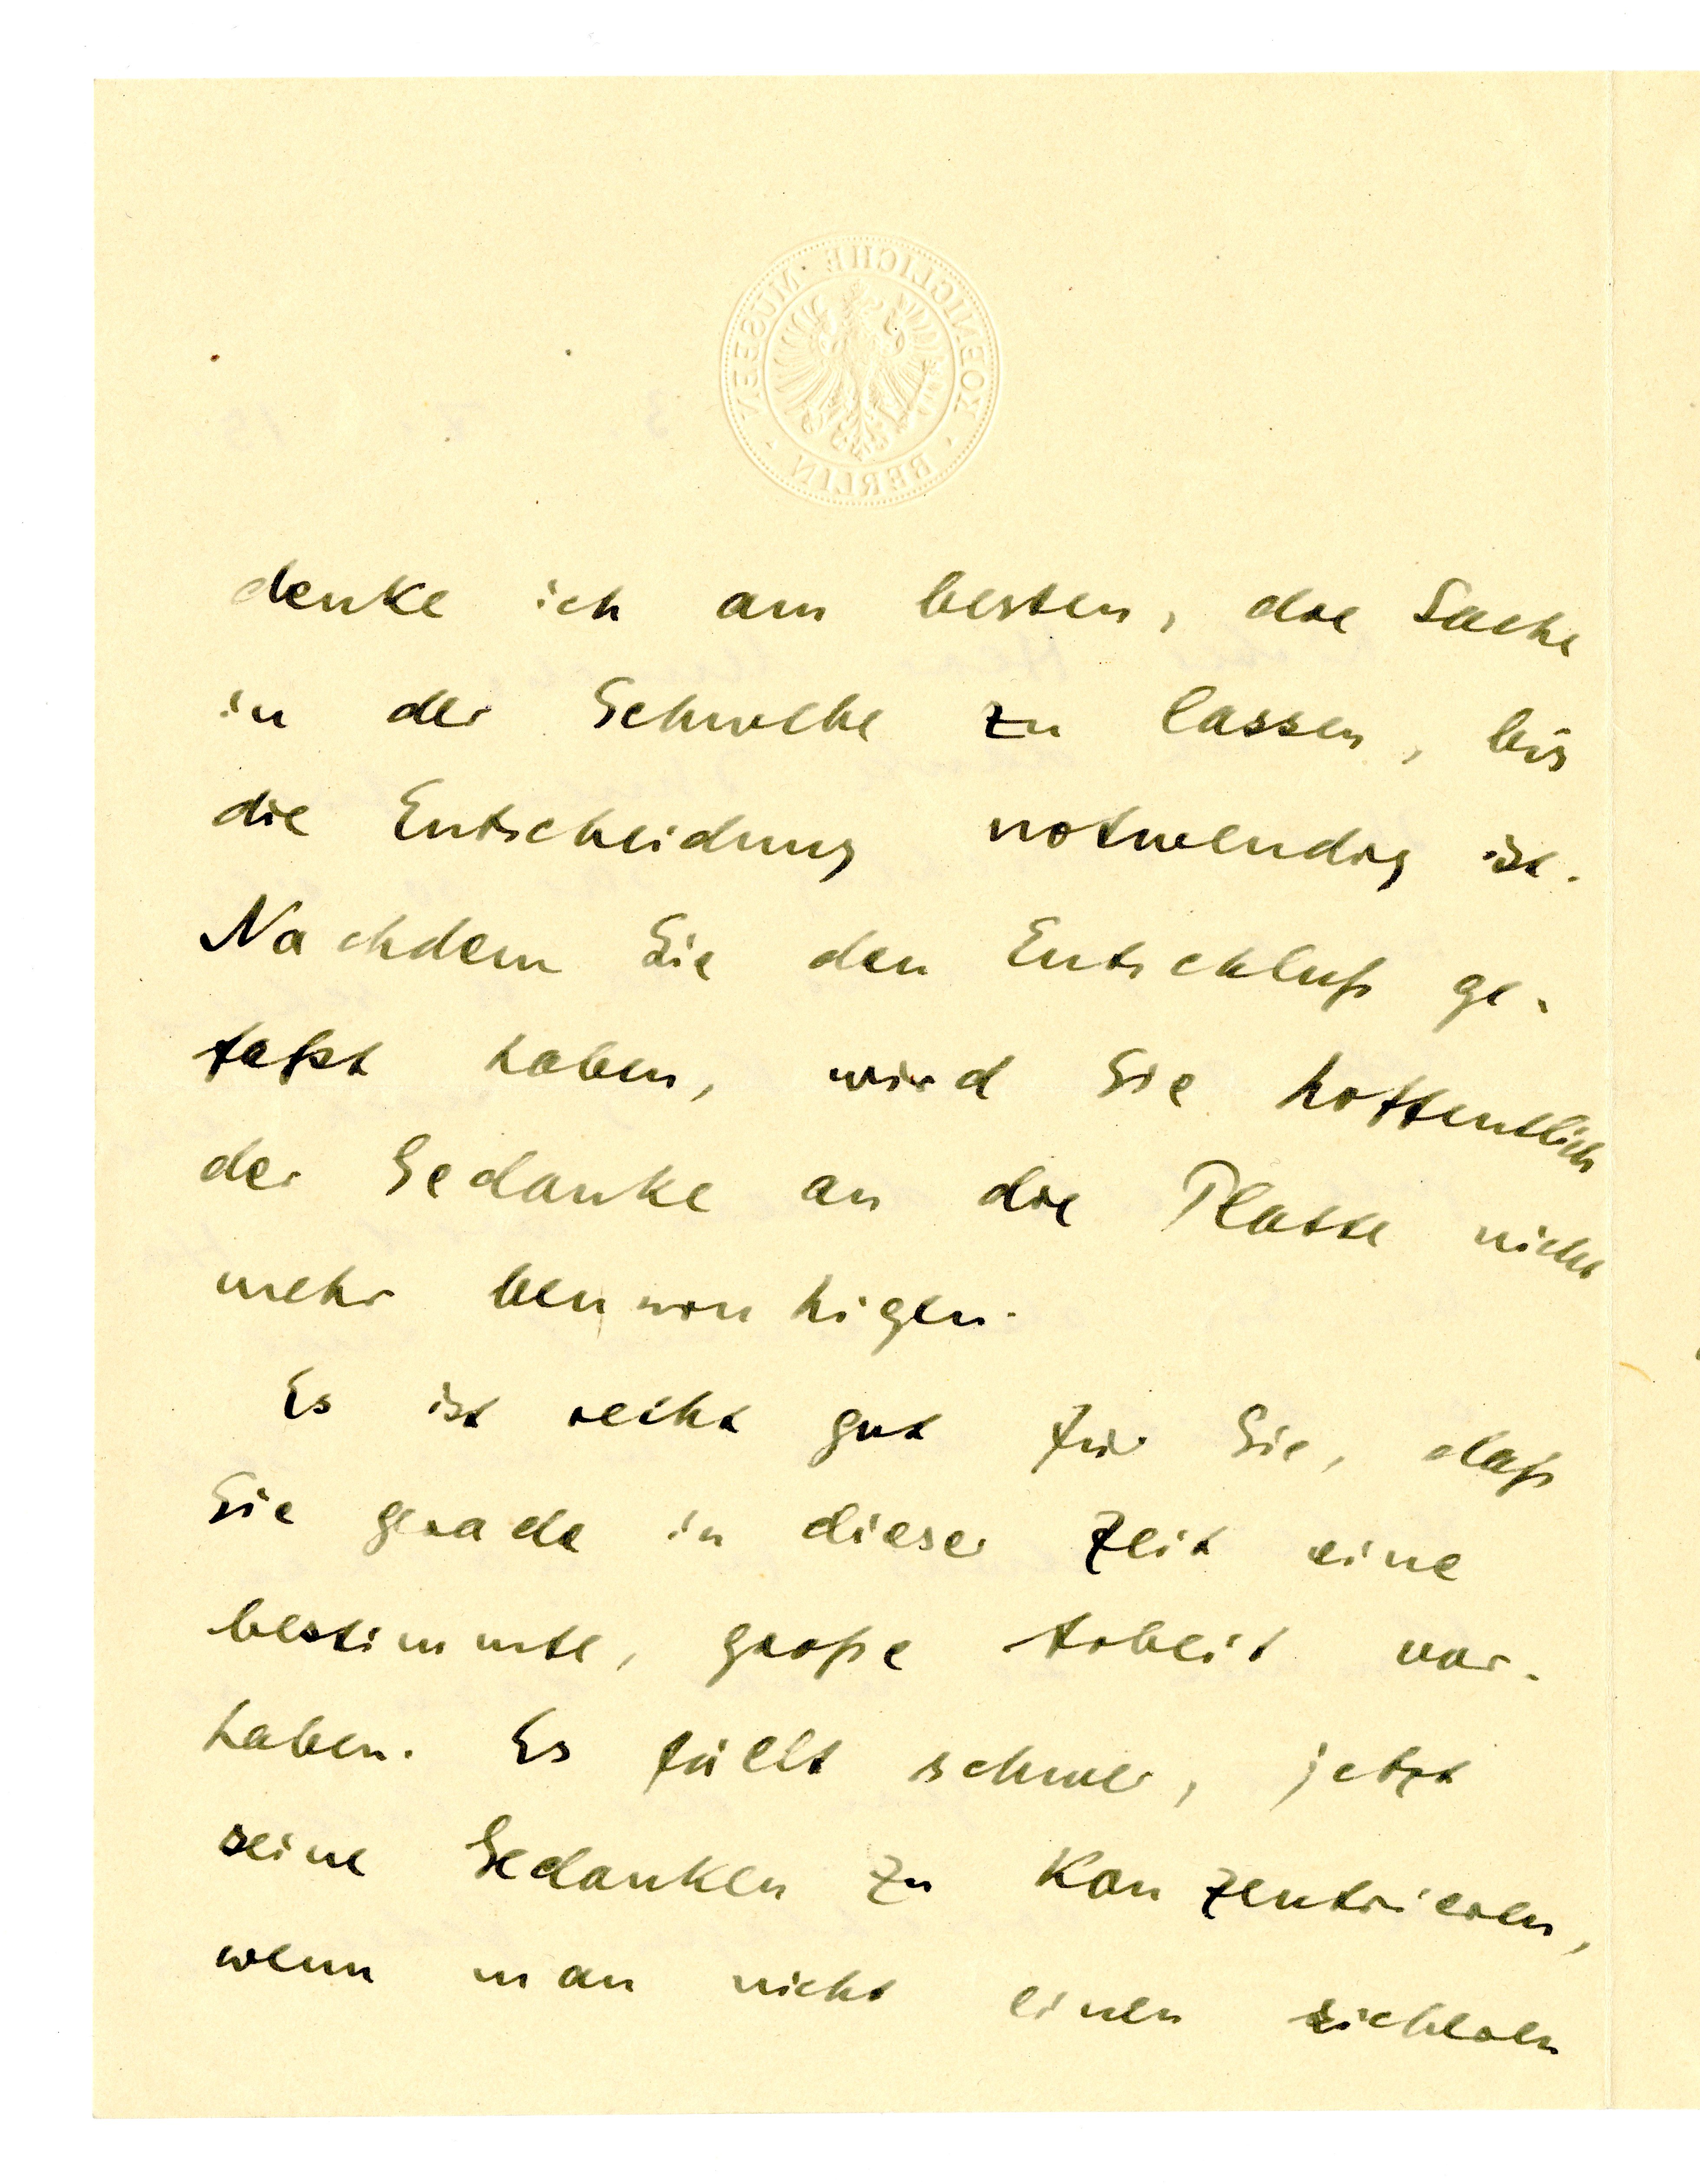 KOENIGLICHE · MUSEEN · BERLIN
denke ich am besten, die Sache
in der Schwebe zu lassen, bis
die Entscheidung notwendig ist.
Nachdem Sie den Entschluß ge-
faßt haben, wird Sie hoffentlich
der Gedanke an die Platte nicht
mehr
Es ist recht gut für Sie, daß
Sie gerade in dieser Zeit eine
bestimmte, große Arbeit vor-
haben. Es fällt schwer, jetzt
seine Gedanken zu konzentrieren,
wenn man nicht einen sicheren